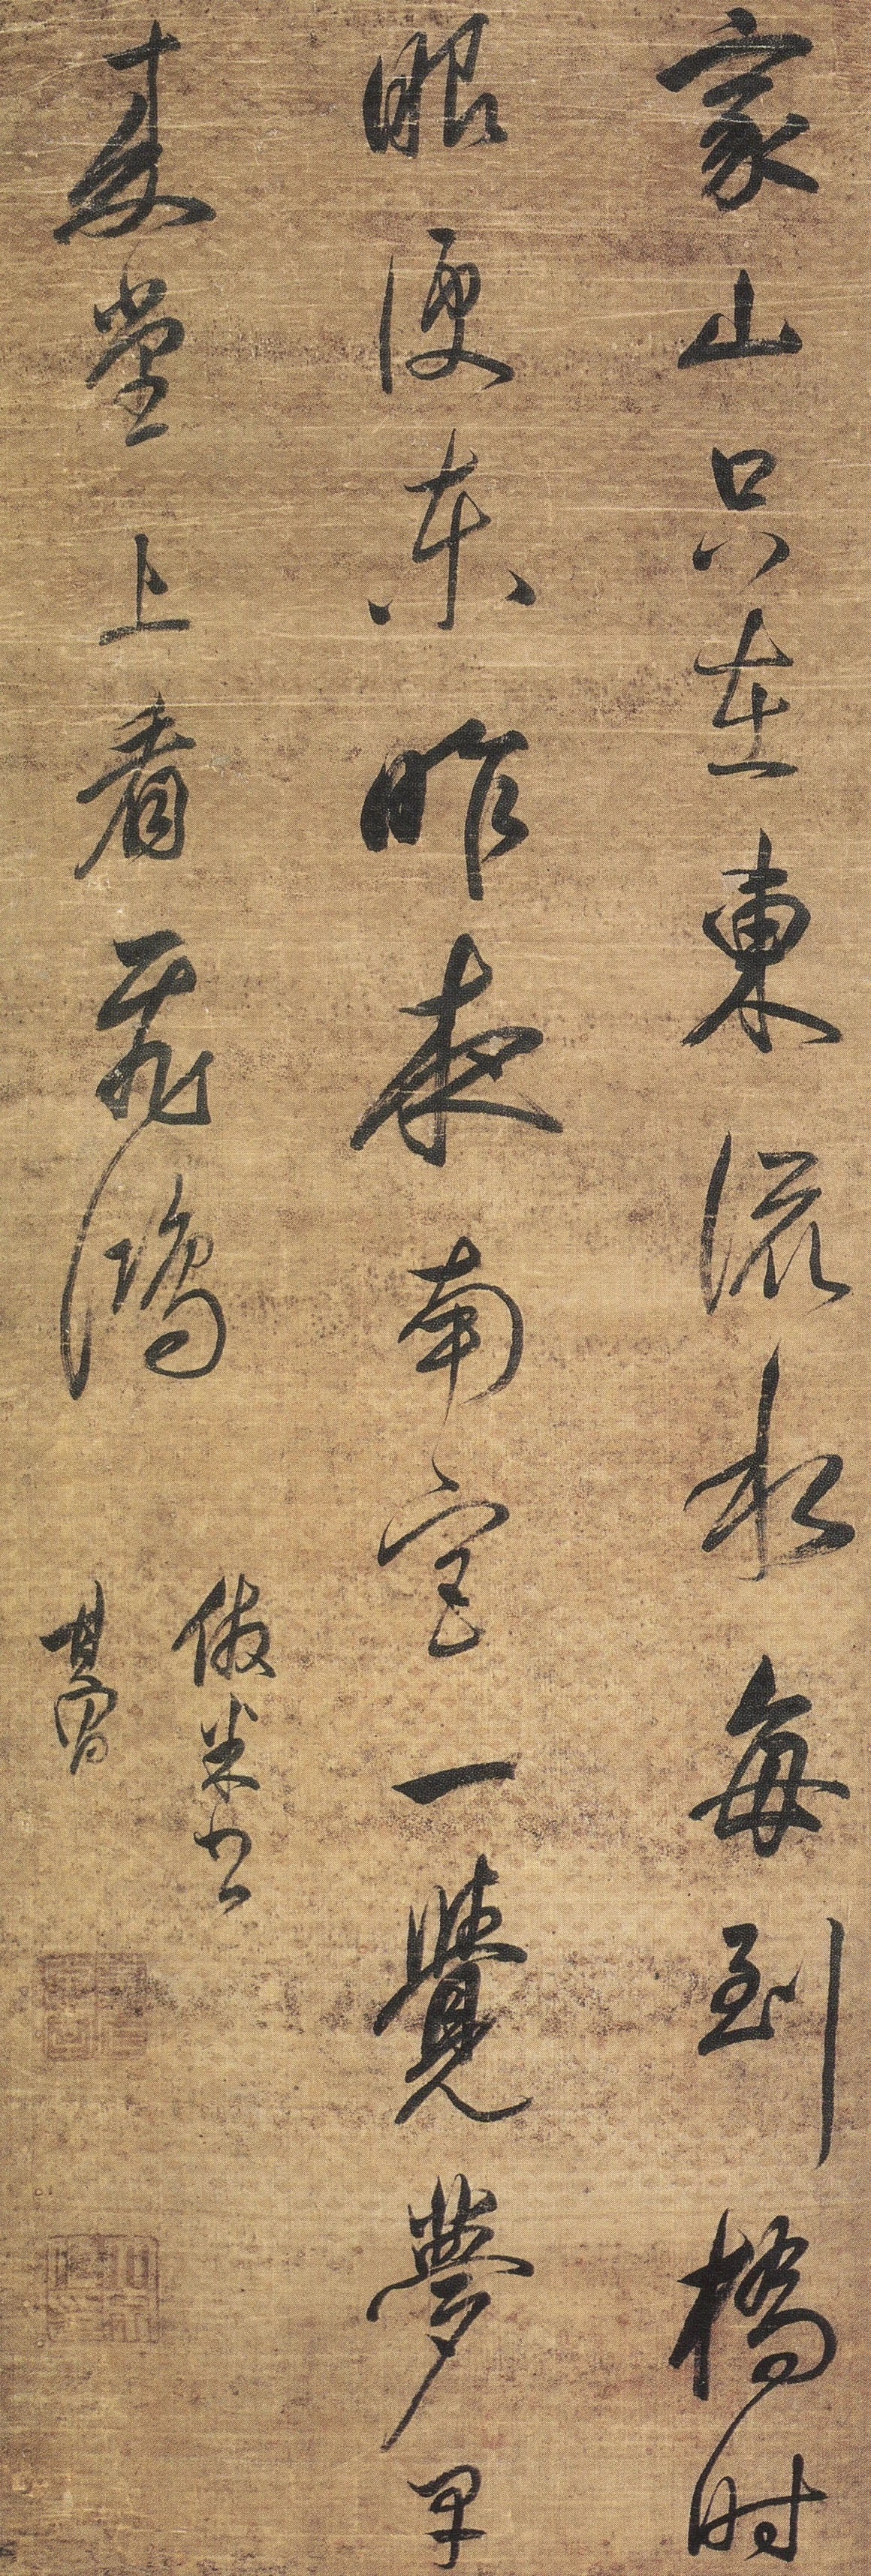 家山只在東流水每到橋時
眼便東昨夜南宫一覺夢早
麦堂上看飛鴻
倣米書
其昌